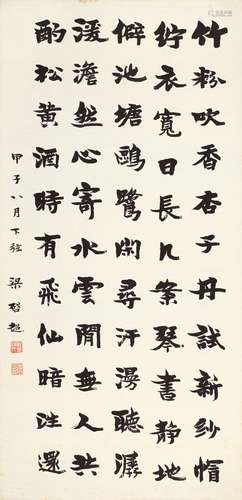 竹粉吹香杏子丹試新紗帽
紵衣寬日長几案琴書靜地
僻池塘鷗鷺閑尋汗漫聽潺
湲澹然心寄水雲閒無人共
酌松黃酒時有飛仙暗往還
甲子八月下浣 梁啓超